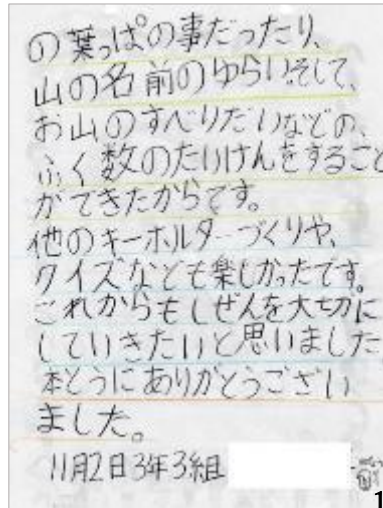 の葉っぱの事だったり、
山の名前のゆらい。そして、
お山のすべりだいなどの、
ふく数のたいけんをすること
ができたからです。
他のキーホルダーづくりや、
クイズなども楽しかったです。
これからもしぜんを大切に
していきたいと思いました
本とうにありがとうござい
ました。
11月2日3年3組
1